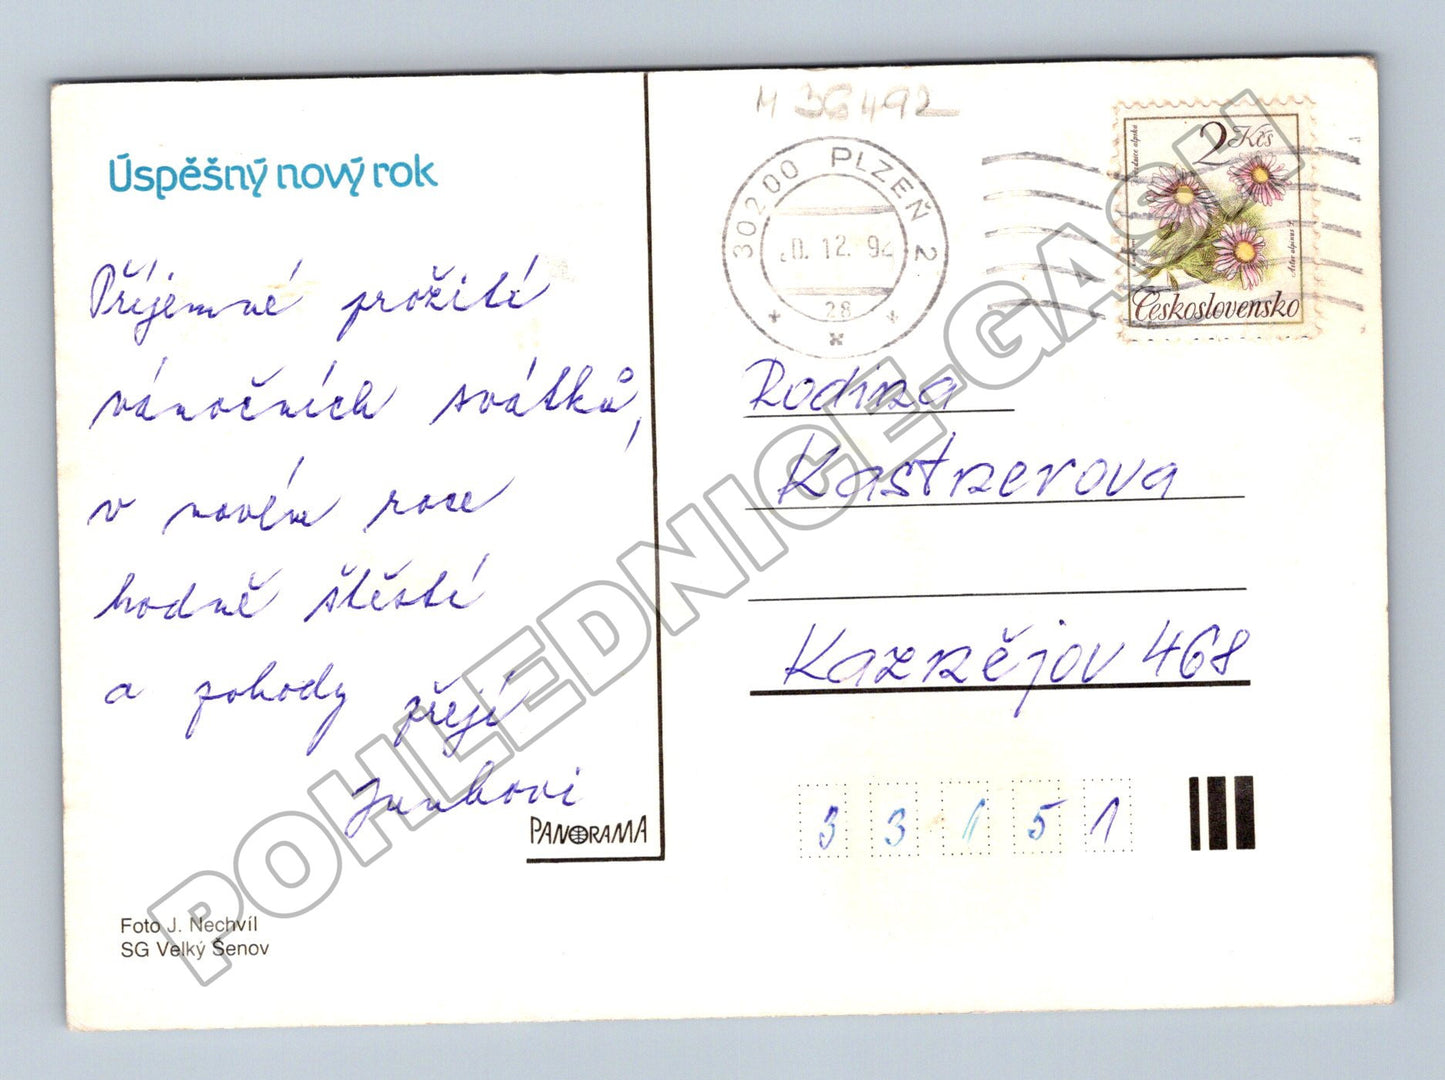 Úspěšný nový rok
Příjemné prožití
vánočních svátků,
v novém roce
hodně štěstí
a pohody přejí
PANORAMA
Foto J. Nechvíl
SG Velký Šenov
M 36492
30200 PLZEŇ 2
0. 12. 92
28
2 Kčs
Aster alpinus L.
Československo
Rodina
Kastnerova
Kaznějov 468
33151
POHLEDNICE-GASH